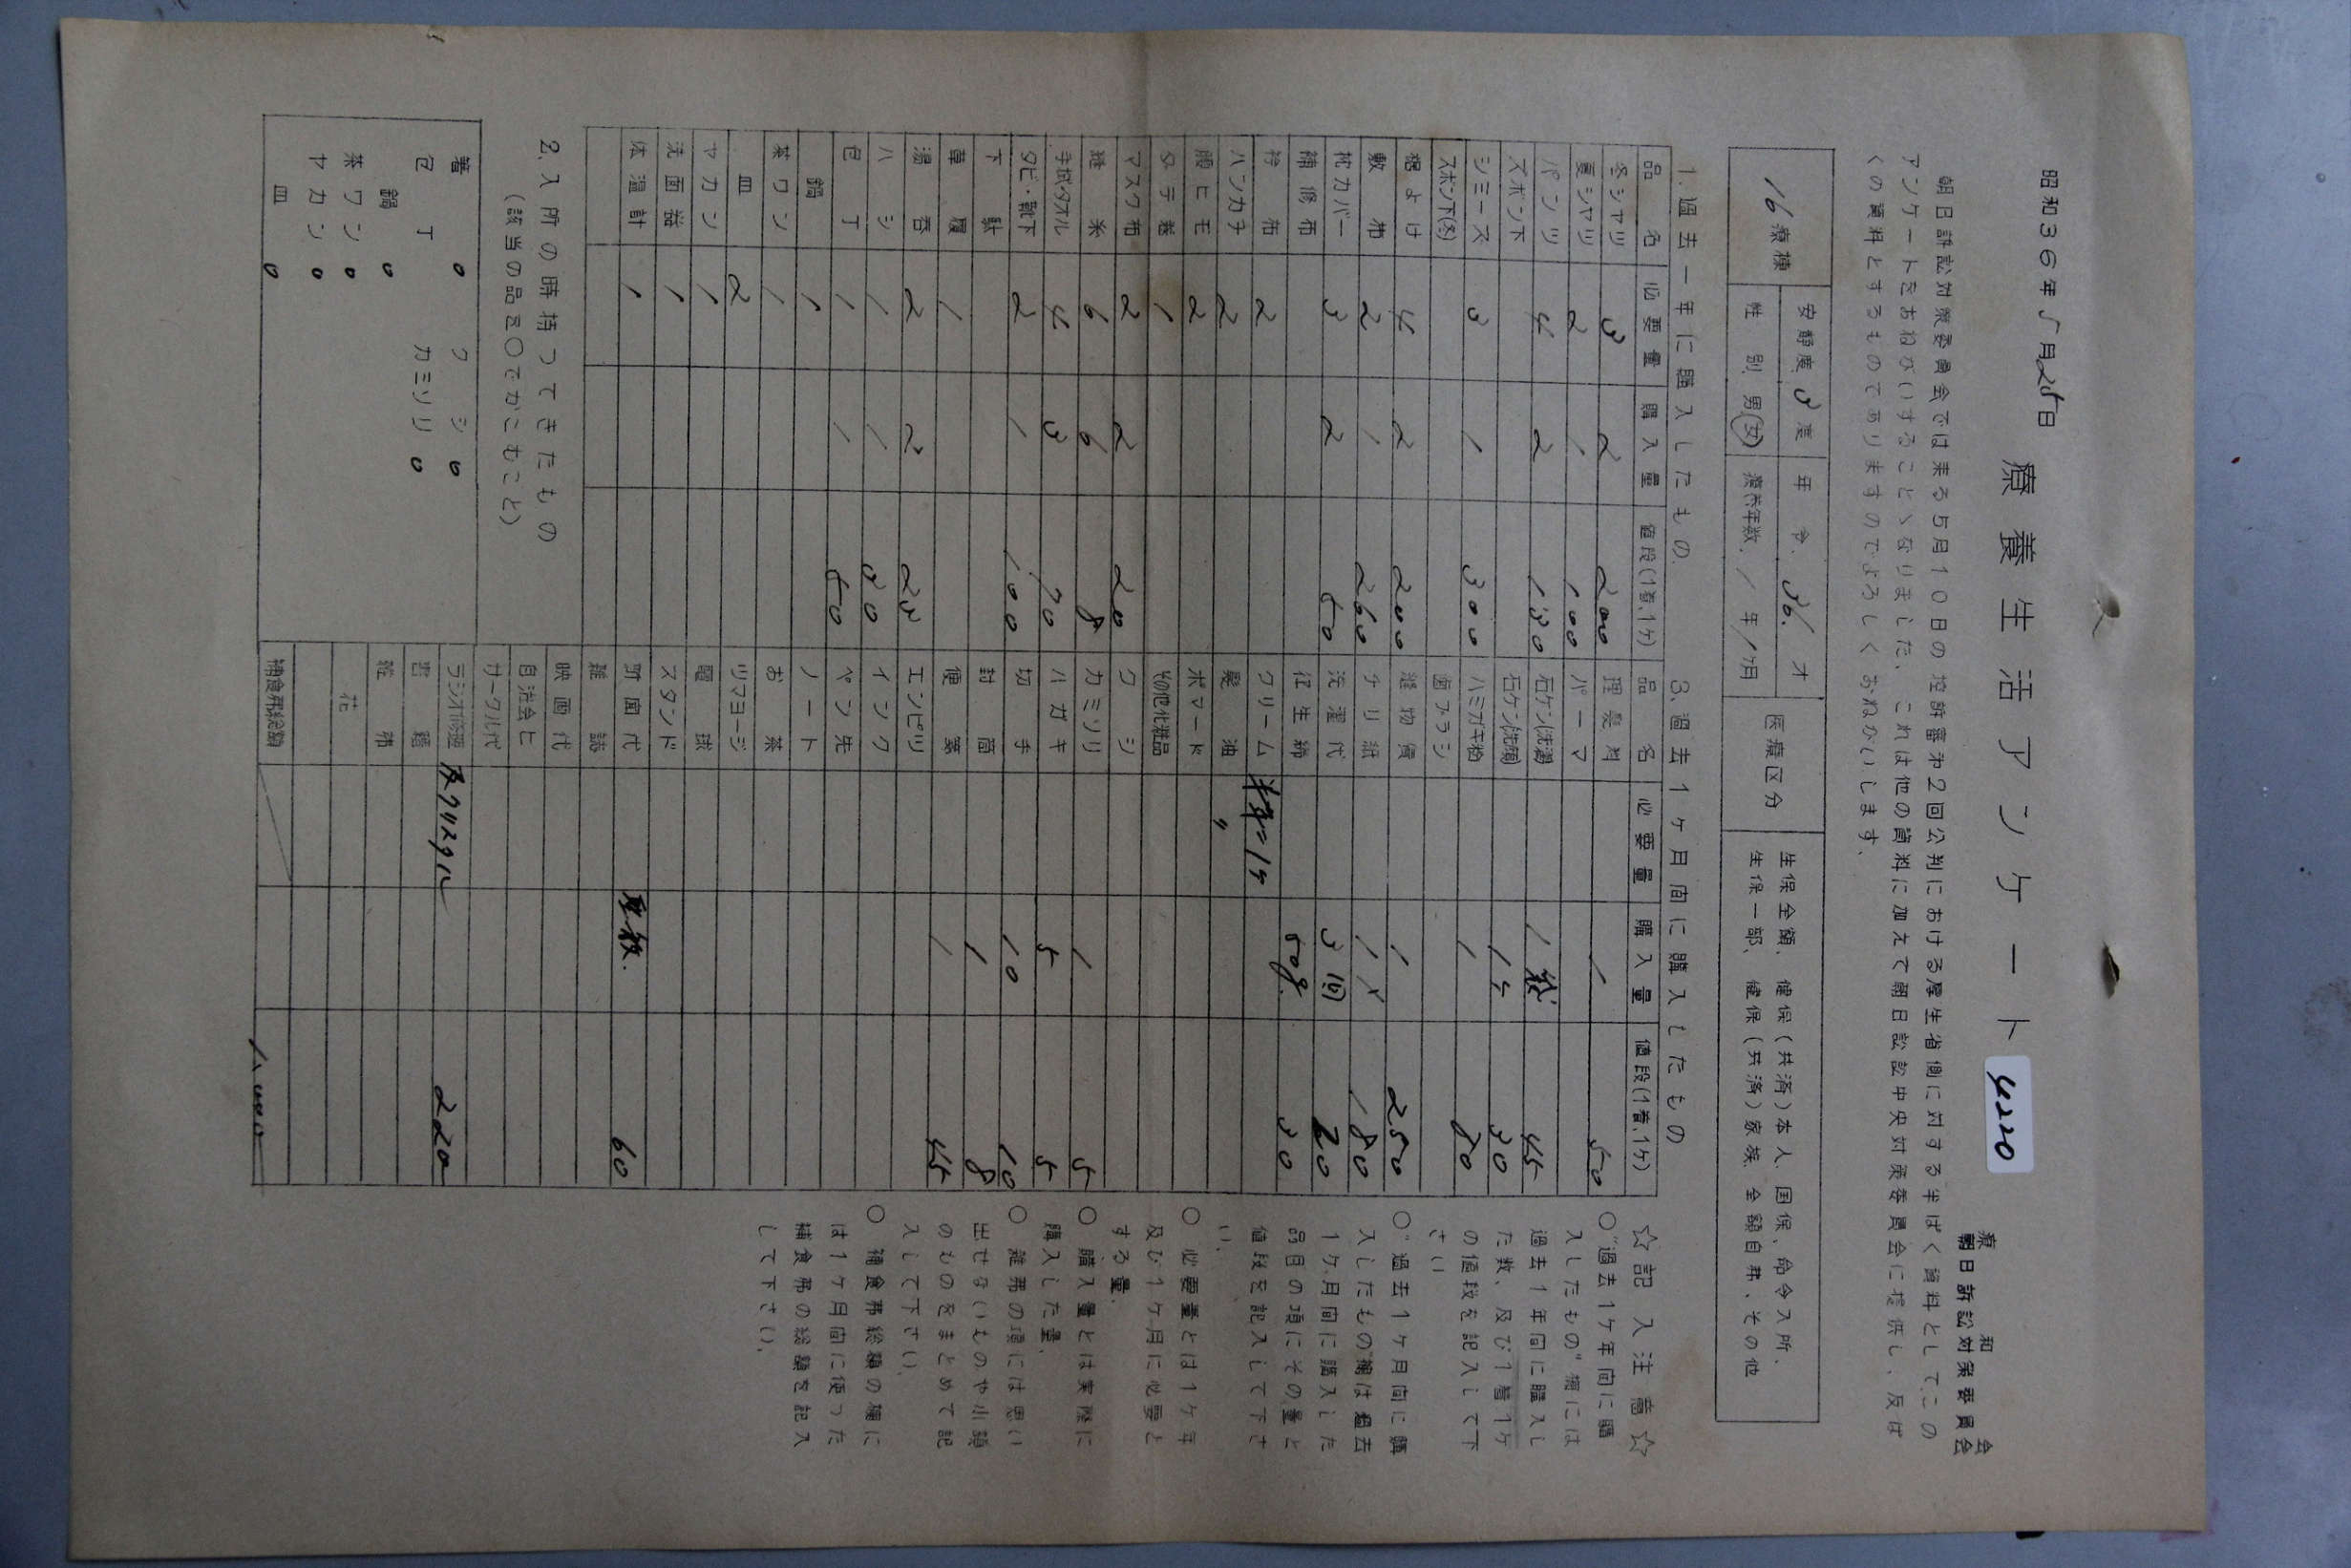 昭和36年5月25日
療養生活アンケート
4220
療和会
朝日訴訟対策委員会
朝日訴訟対策委員会では来る5月10日の控訴審第2回公判における厚生省側に対する半ばく資料としてこの
アンケートをおねがいすることゝなりました、これは他の資料に加えて朝日訴訟中央対策委員会に提供し、反ば
くの資料とするものでありますのでよろしくおねがいします、
16療棟
安静度 3度
年令、36.才
性別 男(女)
療養年数、1年1ヶ月
医療区分
生保全額、健保(共済)本人、国保、命令入所、
生保一部、健保(共済)家族、全額自弗、その他
1.過去一年に購入したもの
品名 必要量 購入量 値段(1着、1ヶ)
冬シャツ 3 2 200
夏シャツ 2 1 100
パンツ 4 2 130
ズボン下
シミーズ 3 1 300
スボン下(冬)
裾よけ 4 2 200
敷布 2 1 260
枕カバー 3 2 50
補修布
衿布 2
ハンカチ 2
腰ヒモ 2
タテ巻 1
マスク布 2 2 20
糸 6 6 8
手拭・タオル 4 3 70
タビ・靴下 2 1 100
下駄
草履 1
湯呑 2 2 23
ハシ 1 1 30
包丁 1 1 50
鍋 1
茶ワン 1
皿 2
ヤカン 1
洗面器 1
体温計 1
2.入所の時持ってきたもの
(該当の品を○でかこむこと)
箸 o クシ o
包丁 カミソリ o
鍋 o
茶ワン o
ヤカン o
皿 o
3.過去1ヶ月間に購入したもの
品名 必要量 購入量 値段(1着、1ヶ)
理髪料 1 50
パーマ
石ケン(洗濯) 1 45
石ケン(洗顔) 1ケ 30
ハミガキ粉 1 80
歯ブラシ
縫物賃 1 250
チリ紙 1〆 180
洗濯代 3回 20
衛生綿 50g. 30
クリーム 半年=1ケ
髪油 〃
ポマード
その他化粧品
クシ
カミソリ 1 5
ハガキ 5 5
切手 10 10
封筒 1 8
便箋 1 45
エンピツ
インク
ペン先
ノート
お茶
ツマヨージ
電球
スタンド
新聞代 60
雑誌
映画代
自治会ヒ
サークル代
ラジオ修理 220
書籍
雑弗
花
補食弗総額 1.000
☆記入注意☆
○"過去1ヶ年間に購
入したもの"欄には
過去1年間に購入し
た数、及び1着1ヶ
の値段を記入して下
さい
○"過去1ヶ月間に購
入したもの"欄は過去
1ヶ月間に購入した
品目の項にその量と
値段を記入して下さ
い、
○必要量とは1ヶ年
及び1ヶ月に必要と
する量、
○購入量とは実際に
購入した量、
○雑弗の項には思い
出せないものや小額
のものをまとめて記
入して下さい、
○補食弗総額の欄に
は1ヶ月間に使った
補食弗の総額を記入
して下さい、